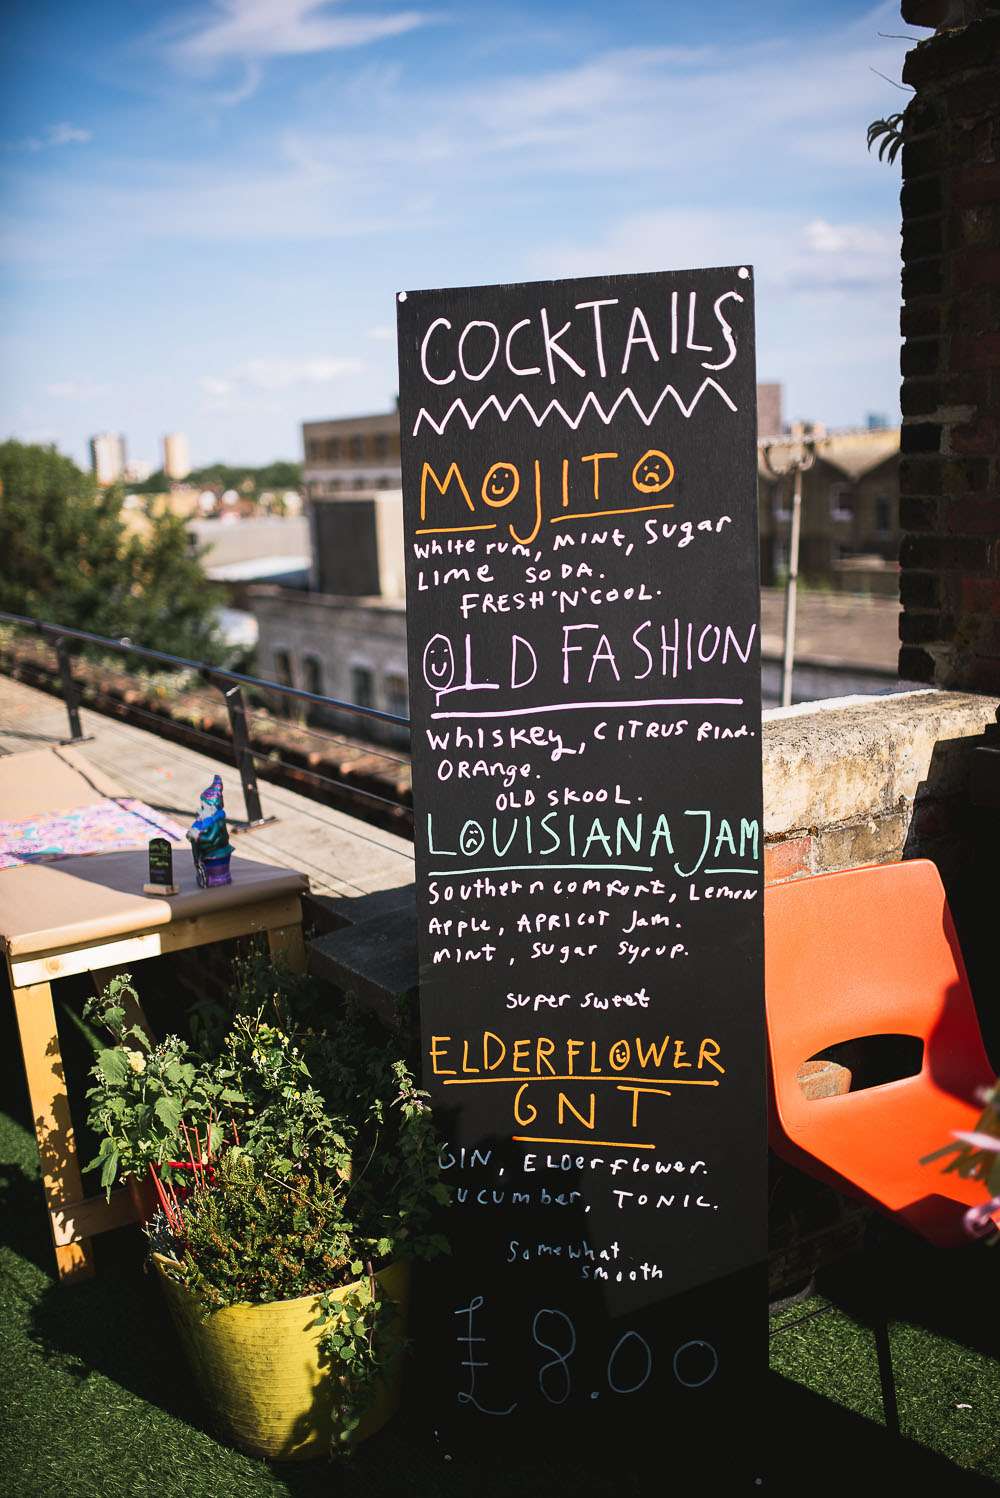 COCKTAILS
MOJITO
white rum, mint, sugar
Lime soda.
FRESH'N'COOL.
OLD FASHION
whiskey, citrus rind.
orange.
OLD SKOOL.
LOUISIANA JAM
southern comfort, Lemon
Apple, APRICOT Jam.
mint, sugar syrup.
super sweet
ELDERFLOWER
GNT
GIN, ELDerflower.
cucumber, TONIC.
Somewhat
smooth
£8.00